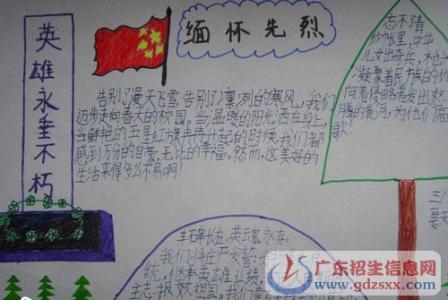 英雄永垂不朽
缅怀先烈
告别了漫天飞雪,告别了凛冽的寒风,我们
迈步走向春天的校园。当温暖的阳光洒在身上,
当鲜艳的五星红旗冉冉升起的时候,我们都
感到万分的自豪,无比的幸福。然而,这美好的
生活来得多么不易啊!
志不清
儿女
凝聚着民族的
向着侵略者发出怒
腾的黄河,为他们
歌!
丰碑长在,英云魂永存,
我们将在
统,继承英雄业绩
志
广东招生信息网
www.gdzsxx.com